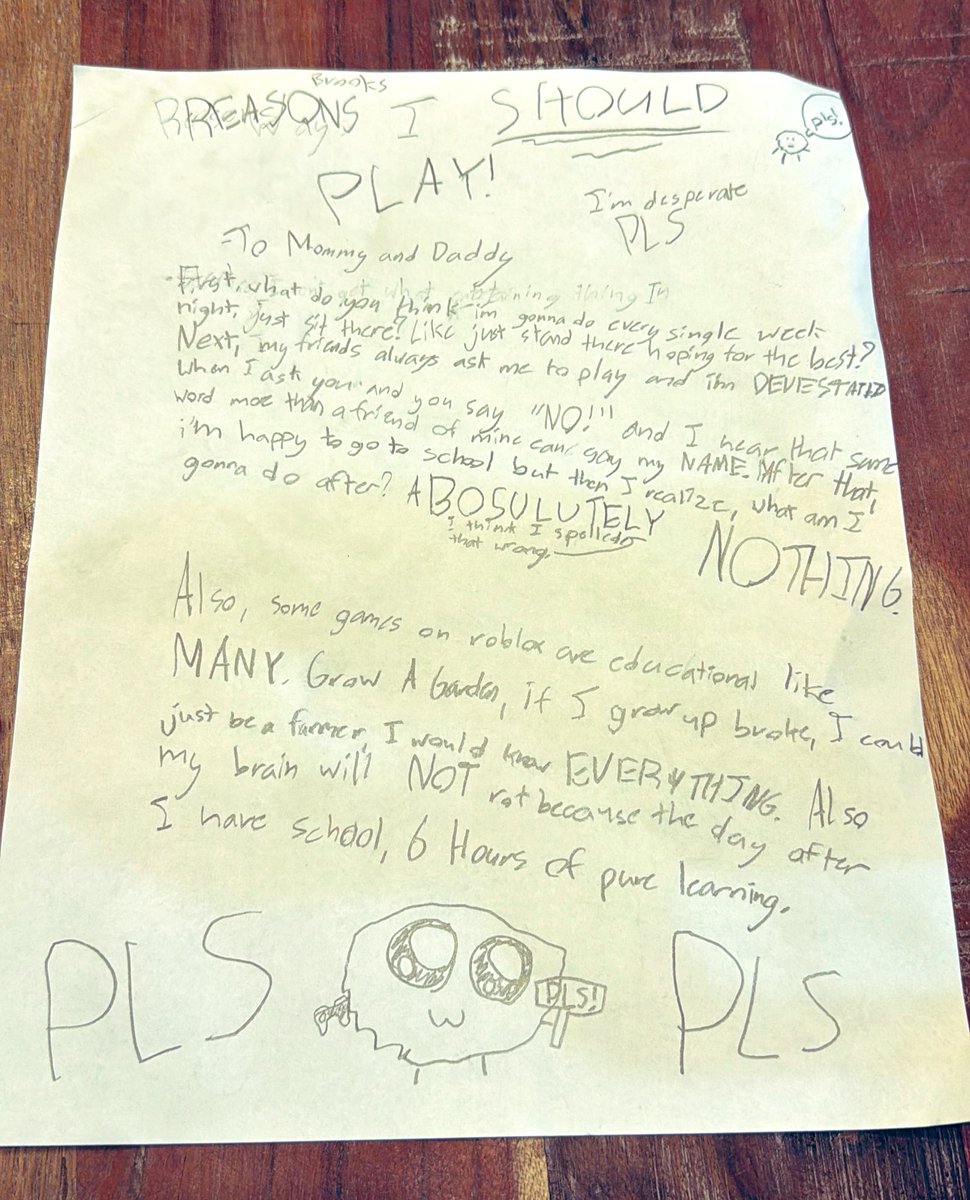 Brooks
REASONS I SHOULD
pls!
PLAY!
I'm desperate
PLS
-To Mommy and Daddy
First, what do you think im gonna do every single week
night, just sit there? Like just stand there hoping for the best?
Next, my friends always ask me to play and i'm DEVESTATED
when I ask you and you say "NO!!!" and I hear that same
word moe than a friend of mine can say my NAME. After that,
i'm happy to go to school but then I realize, what am I
gonna do after? ABOSULUTELY
I think I spelled
that wrong.
NOTHING.
Also, some games on roblox are educational like
MANY. Grow A Garden, if I grow up broke, I could
just be a farmer, I would know EVERYTHING. Also
my brain will NOT rot because the day after
I have school, 6 Hours of pure learning.
PLS
PLS!
PLS